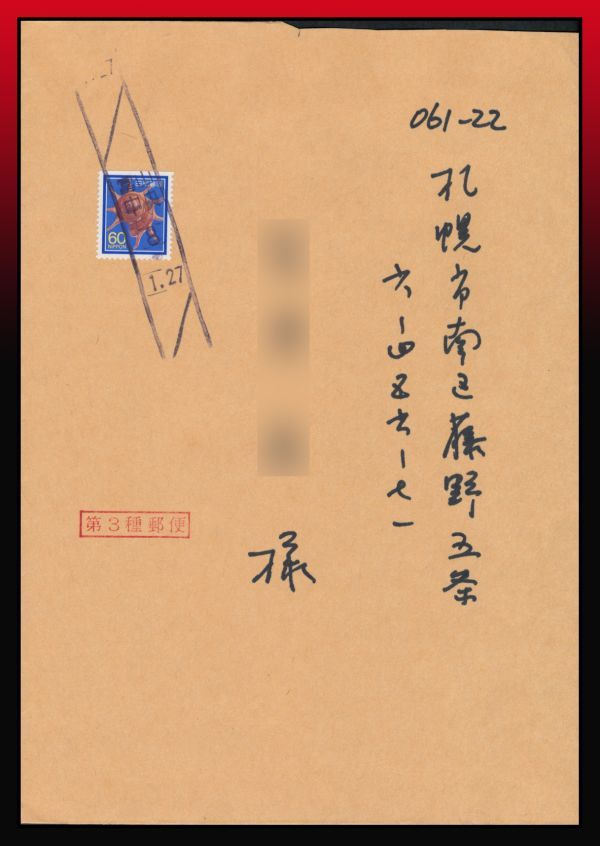 061-22
札幌市南区藤野五条
六ー四五六ー七一
様
60
NIPPON
1.27
第3種郵便